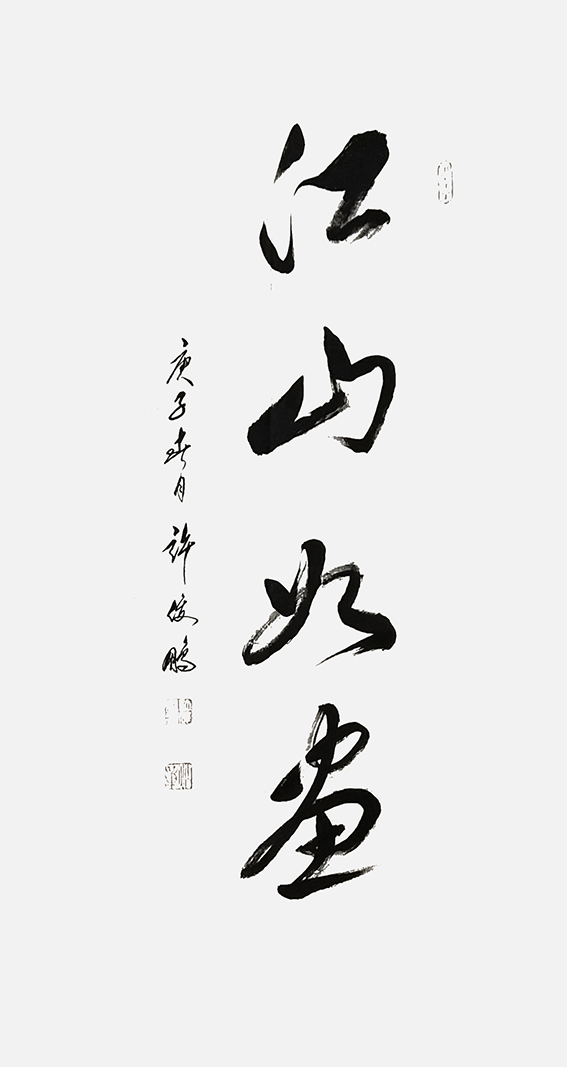 江山如画
庚子春月 许俊鹏